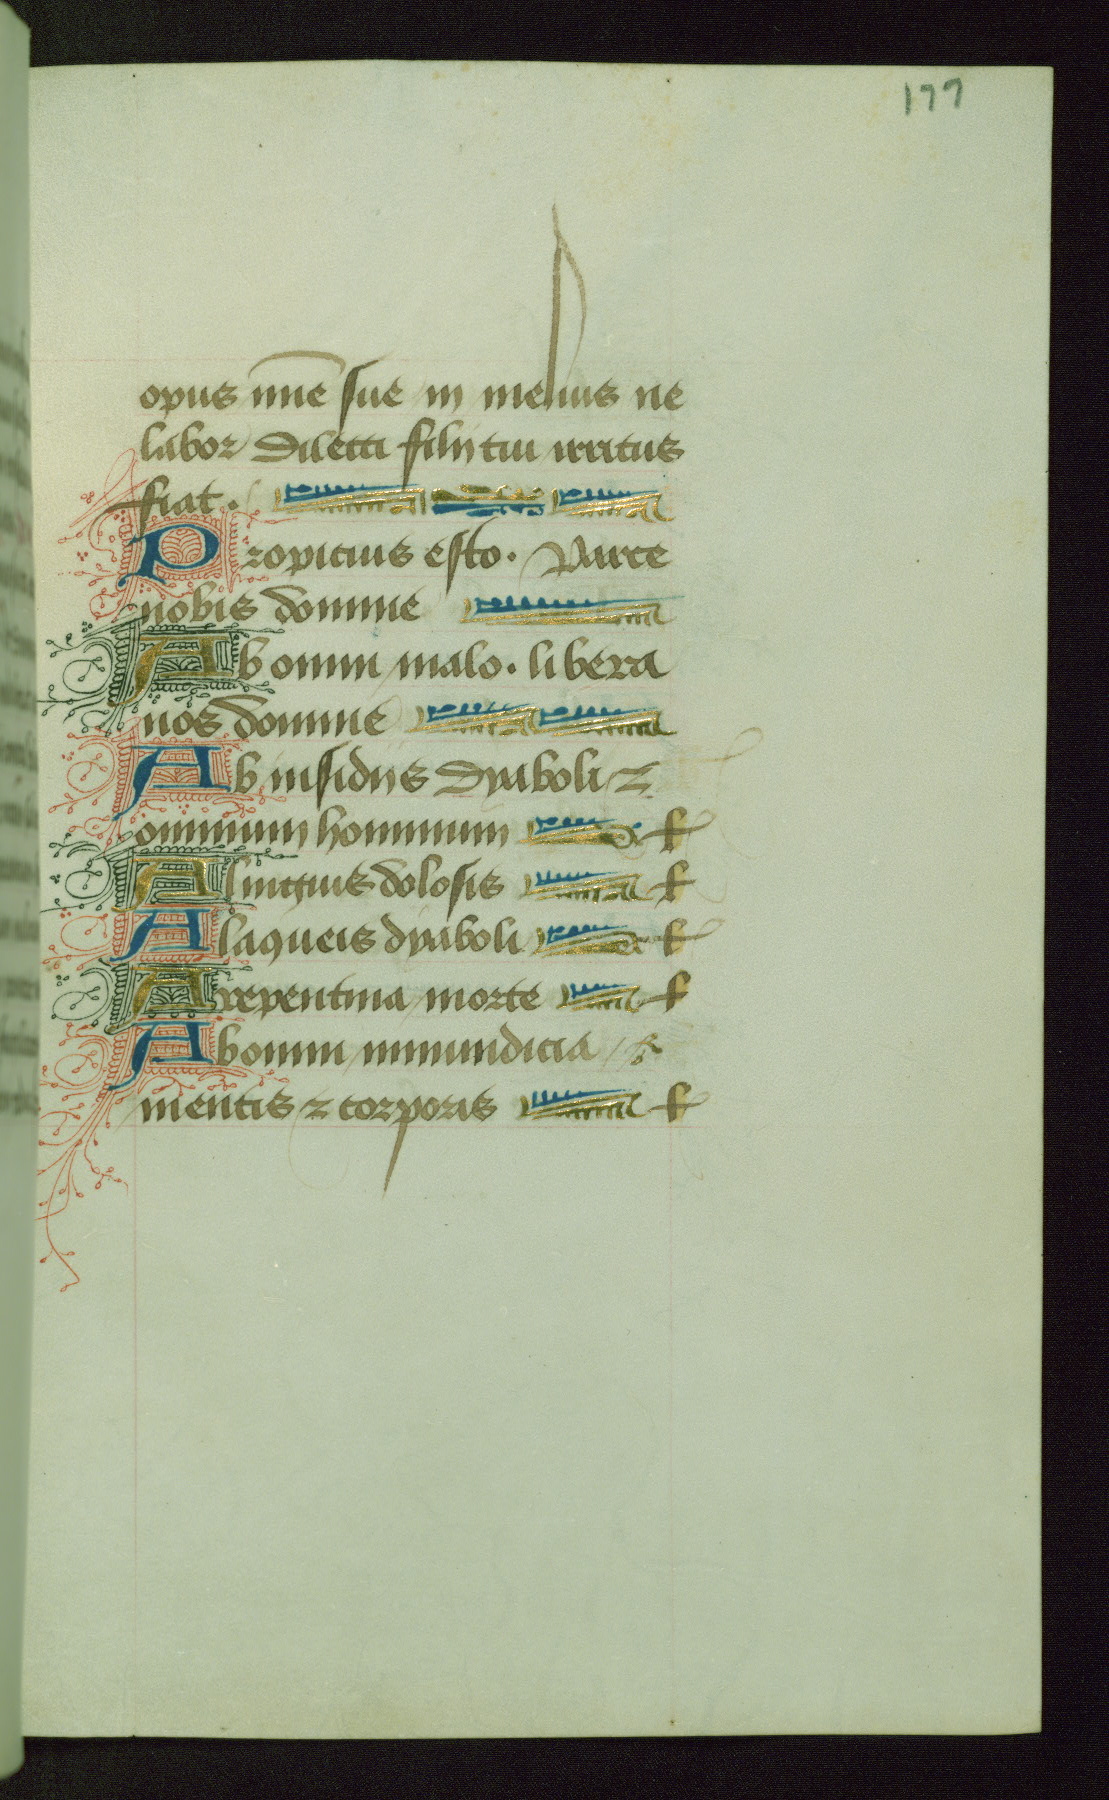 177
opus mīe sue in melius ne
labor dilecti filij tui irritus
fiat.
Propicius esto. Parce
nobis domine
Ab omni malo. libera
nos domine
Ab insidijs dyaboli ⁊
omnium hominum
A linguis dolosis
A laqueis dyaboli
A repentina morte
Ab omni inmundicia
mentis ⁊ corporis